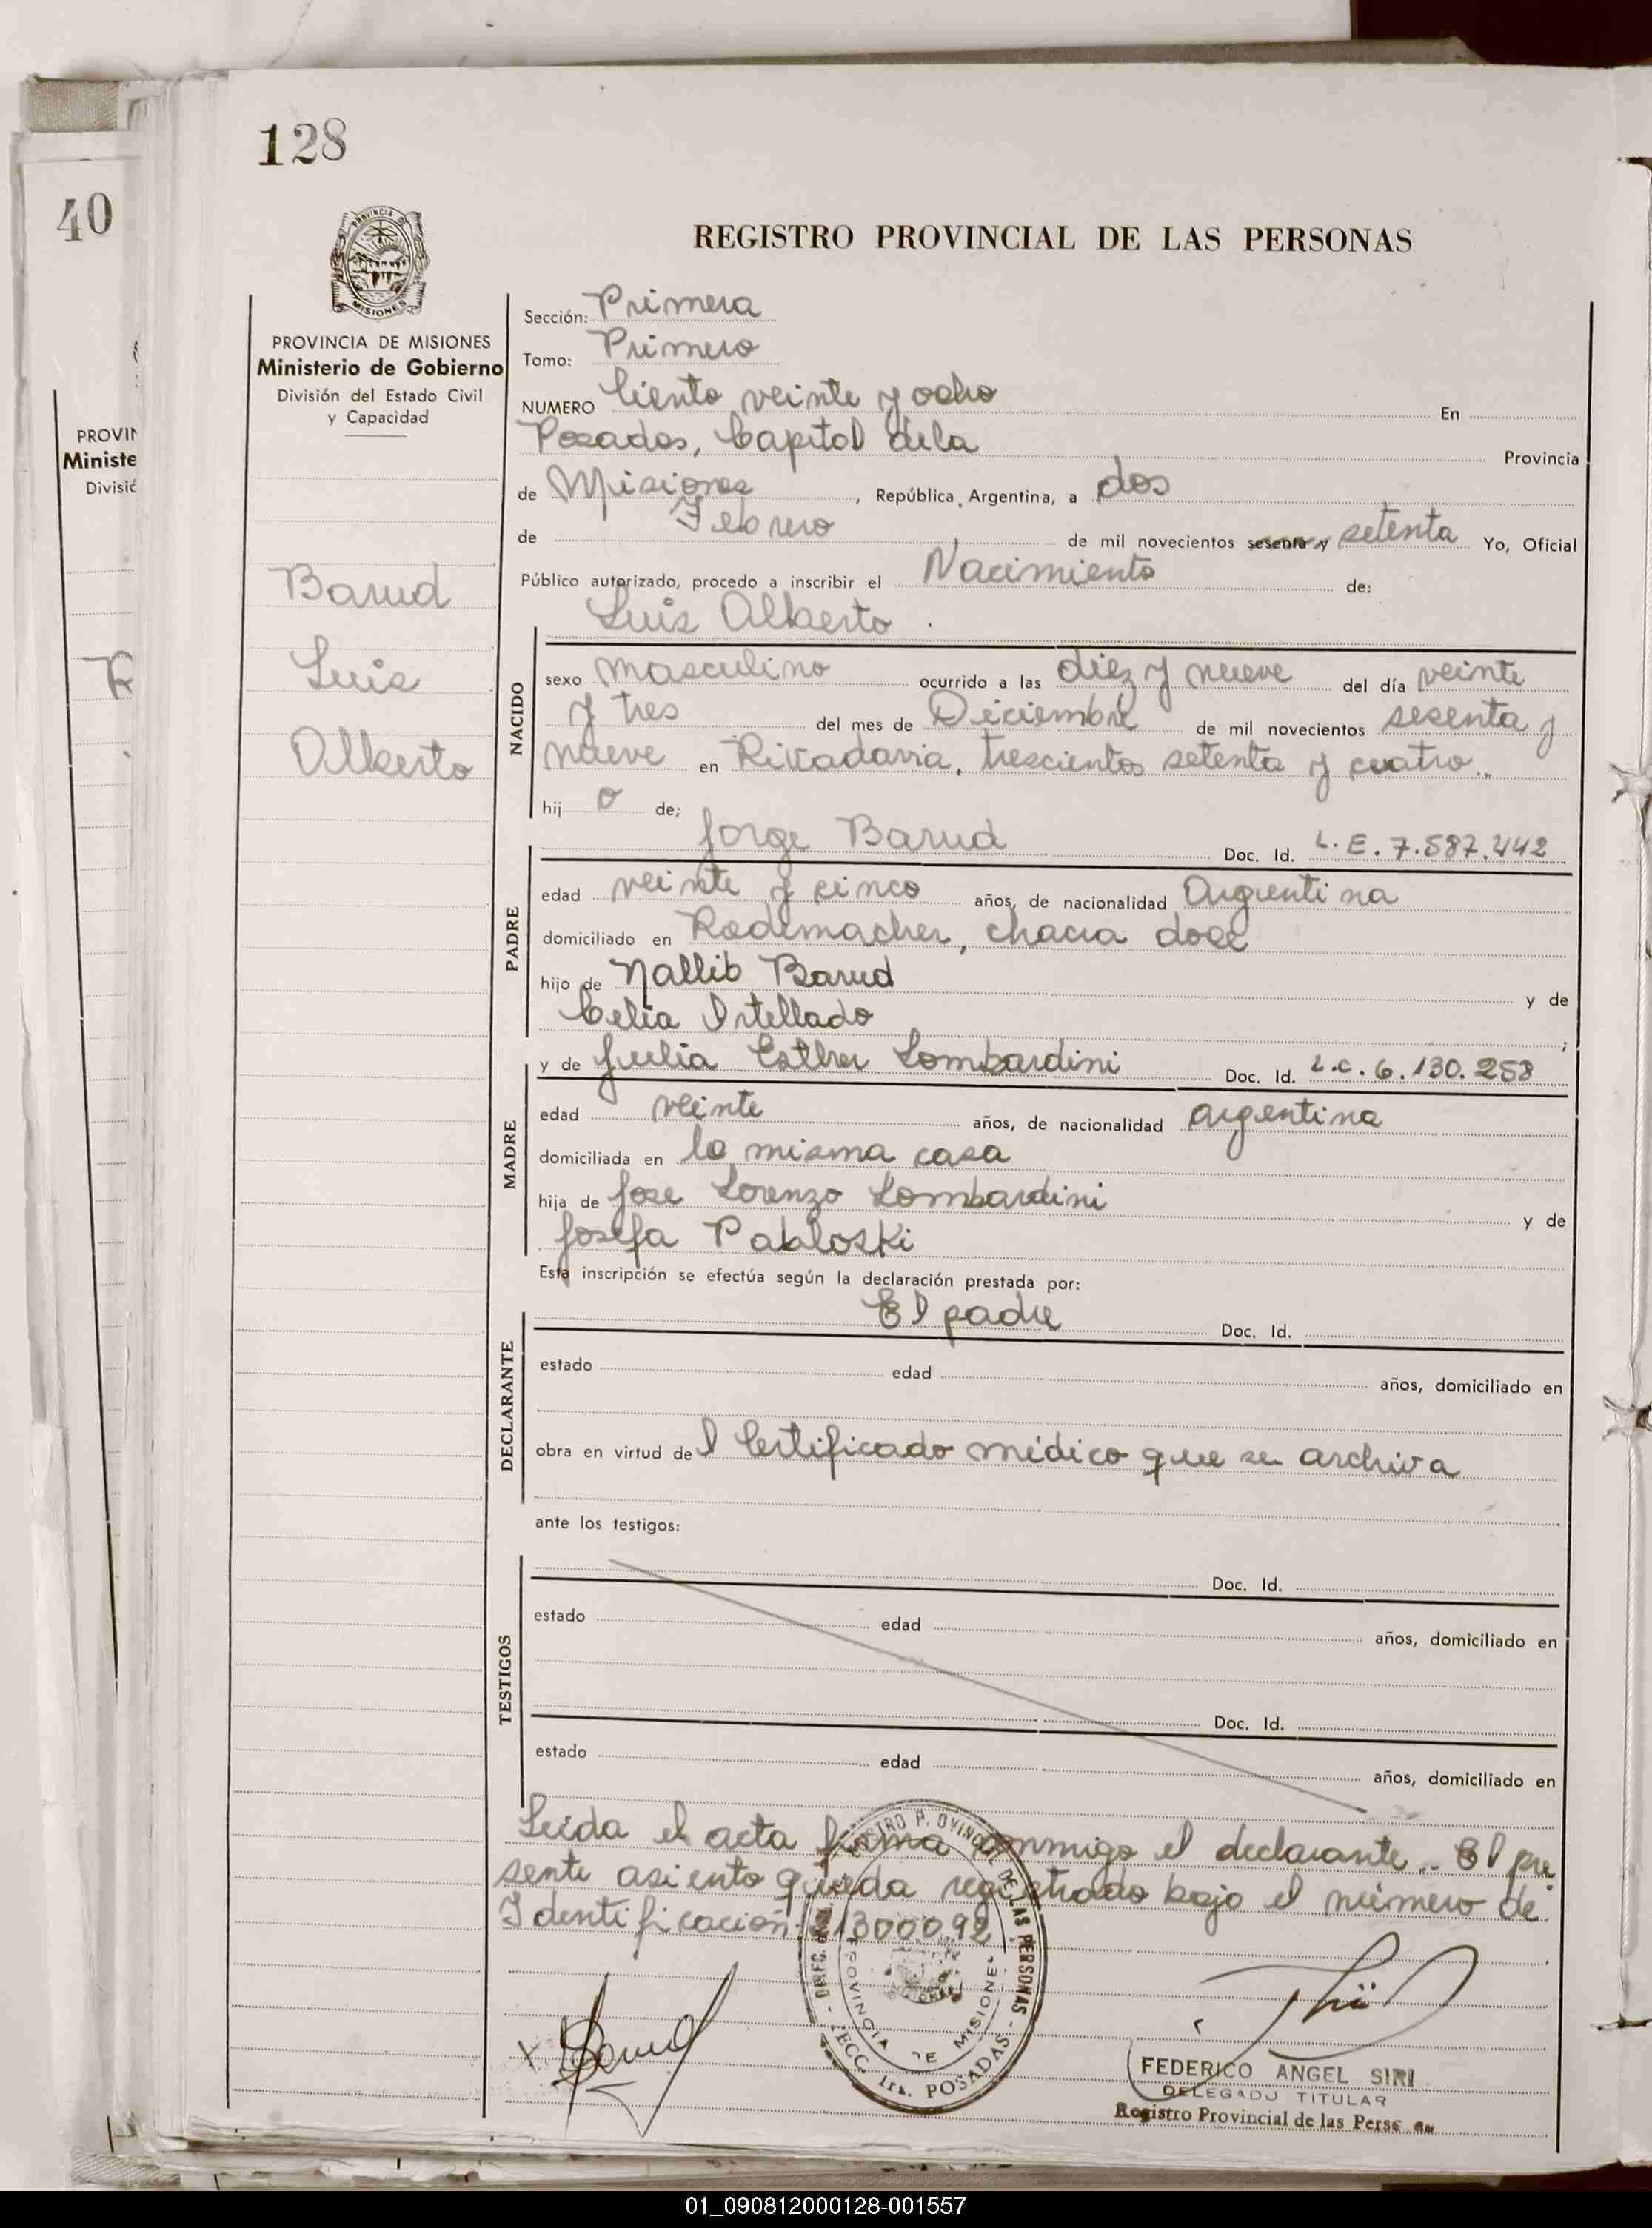 128
40
PROVINCIA DE MISIONES
Ministerio de Gobierno
División del Estado Civil
y Capacidad
PROVIN
Ministe
Divisió
Barud
Luis
Alberto
REGISTRO PROVINCIAL DE LAS PERSONAS
Sección: Primera
Tomo: Primero
NUMERO Ciento veinte y ocho En
Posadas, Capital de la Provincia
de Misiones, República Argentina, a dos
de Febrero de mil novecientos sesenta y setenta Yo, Oficial
Público autorizado, procedo a inscribir el Nacimiento de:
Luis Alberto.
NACIDO
sexo masculino ocurrido a las diez y nueve del día veinte
y tres del mes de Diciembre de mil novecientos sesenta y
nueve en Rivadavia, trescientos setenta y cuatro..
hij o de;
Jorge Barud Doc. Id. L.E. 7.587.442
PADRE
edad veinte y cinco años, de nacionalidad Argentina
domiciliado en Rademacher, chacra doce
hijo de Nallib Barud y de
Celia Intellado ;
y de Julia Esther Lombardini Doc. Id. L.C. 6.130.258
MADRE
edad veinte años, de nacionalidad argentina
domiciliada en la misma casa
hija de Jose Lorenzo Lombardini y de
Josefa Pabloski
Esta inscripción se efectúa según la declaración prestada por:
El padre Doc. Id.
DECLARANTE
estado edad años, domiciliado en
obra en virtud de l Certificado médico que se archiva
ante los testigos:
TESTIGOS
Doc. Id.
estado edad años, domiciliado en
Doc. Id.
estado edad años, domiciliado en
Leida el acta firma conmigo el declarante.. El pre
sente asiento queda registrado bajo el número de
Identificación: 21300092
Barud
FEDERICO ANGEL SIRI
DELEGADO TITULAR
Registro Provincial de las Perso
POSADAS
01_090812000128-001557